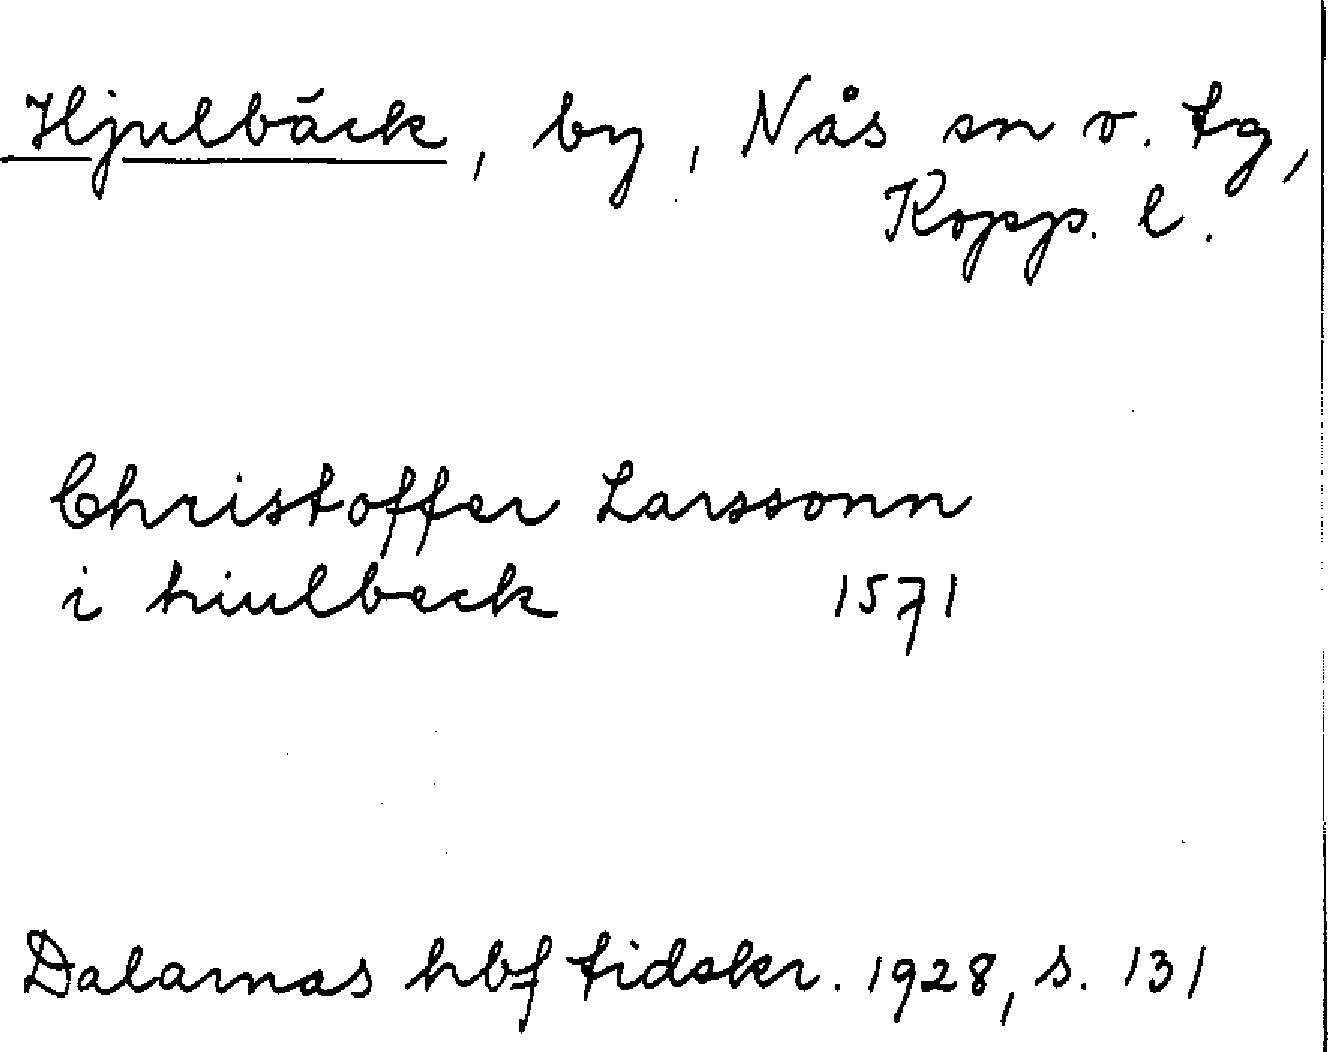 Hjulbäck, by, Nås sn o. tg,
Kopp. l.
Christoffer Larssonn
i hiulbeck 1571
Dalarnas hbf tidskr. 1928, s. 131